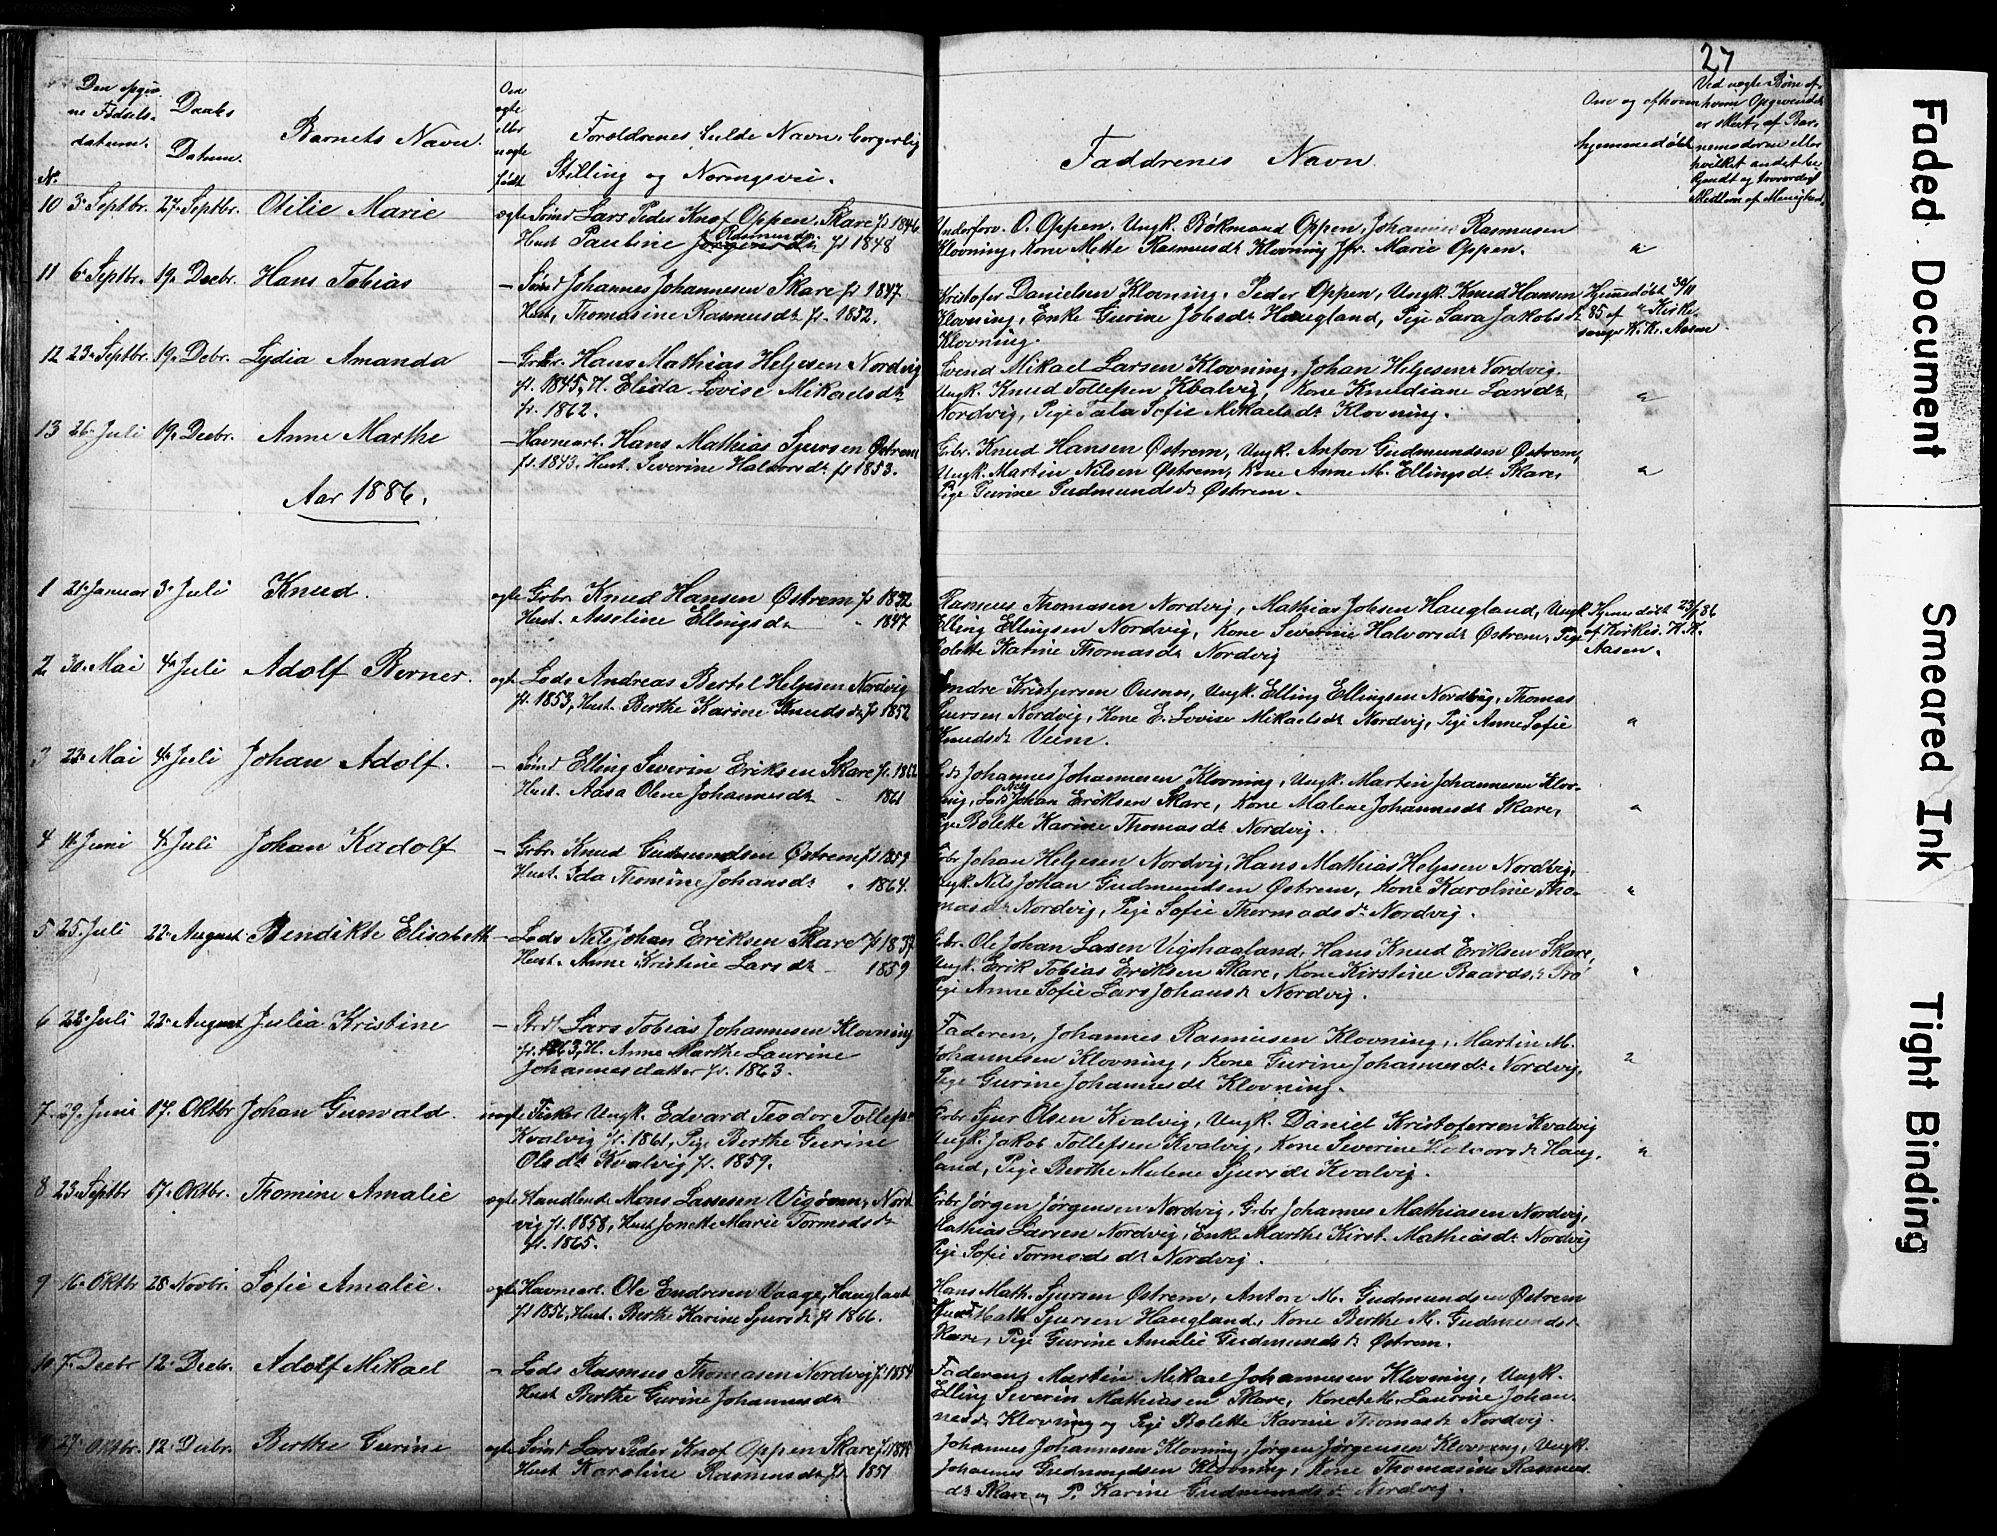 27
Den opgiv-
ne Fødsels-
datum.
Daabs
Datum.
Barnets Navn.
Om
ægte
eller
uægte
født
Forældrenes fulde Navn, borgerlig
Stilling og Næringsvei.
Faddrenes Navn.
Om og af hvem
hjemmedøbt
Ved uægte Børn af
hvem Opgivendet
er skeet, af Bar-
nemoderen eller
hvilket andet be
kjendt og troværdigt
Medlem af Menighed.
No.
10 3 Septbr. 27 Septbr. Otilie Marie
ægte Lars Peder Knot Oppen, Skare f. 1846.
Hust Pauline Rasmusdt f 1848
O. Oppen. Ungk. Bøkmand Oppen, Johannes Rasmusen
Klovning, Kone Mette Rasmusdt Klovning Jfr. Marie Oppen.
11 6 Septbr. 19 Decbr. Hans Tobias
— Johannes Johannesen Skare f. 1847.
Hust, Thomasine Rasmusdt f. 1852.
Kristofer Danielsen Klovning, Peder Oppen, Ungk. Knud Hansen
Klovning, Enke Gurine Jobsdt Haugland, Pige Sara Jakobsdt
Klovning.
Hjemmedøbt 30/11
85 af Kirke-
sanger K. K. Aasen.
12 23 Septbr. 19 Debr. Lydia Amanda
— Grbr. Hans Mathias Helgesen Nordvig
f. 1845, H. Elida Lovise Mikaelsdt
f. 1862.
Svend Mikael Larsen Klovning, Johan Helgesen Nordvig.
Ungk. Knud Tollefsen Kvalvig, Kone Knudiane Larsdt,
Nordvig, Pige Tala Sofie Mikaelsdt Klovning.
13 26 Juli 19 Decbr. Anne Marthe
— Havnearb. Hans Mathias Sjursen Østrem
f. 1843. Hust. Severine Halvorsdt f 1853.
Grbr. Knud Hansen Østrem, Ungk. Anton Gudmundsen Østrem,
Ungk. Martin Nilsen Østrem, Kone Anne M. Ellingsdt Skare,
Pige Gurine Gudmundsdt Østrem.
Aar 1886.
1 21 Januar 3 Juli Knud.
ægte Grbr. Knud Hansen Østrem f 1842
Hust. Asseline Ellingsdt " 1847
Rasmus Thomasen Nordvig, Mathias Jobsen Haugland, Ungk
Elling Ellingsen Nordvig, Kone Severine Halvorsdt Østrem, Pige
Bolette Karine Thomasdt Nordvig
Hjemmedøbt 23/1 86
af Kirkes. K. K.
Aasen.
2 30 Mai 4 Juli Adolf Berner.
ægt Lods Andreas Bertel Helgesen Nordvig
f. 1853, Hust. Berthe Karine Knudsdt f 1852
Endre Ousnes, Ungk. Elling Ellingsen Nordvig, Thomas
Sjursen Nordvig, Kone E. Lovise Mikaelsdt Nordvig, Pige Anne Sofie
Knudsdt Veim.
3 23 Mai 4 Juli Johan Adolf.
— Elling Severin Eriksen Skare f. 1862
Hust. Aasa Olene Johannesdt " 1861
Johannes Johannesen Klovning, Ungk. Martin Johannesen Klov-
ning, Lods Nils Johan Eriksen Skare, Kone Malene Johannesdt Skare,
Pige Bolette Karine Thomasdt Nordvig.
4 11 Juni 4 Juli Johan Kadolf
— Grbr. Knud Gudmundsen Østrem f 1859
Hust. Ida Thomine Johansdt " 1864.
Grbr Johan Helgesen Nordvig, Hans Mathias Helgesen Nordvig,
Ungk. Nils Johan Gudmundsen Østrem, Kone Karoline Tho-
masdt Nordvig, Pige Sofie Thormodsdt Nordvig.
5 25 Juli 22 August Bendikte Elisabeth
— Lods Nils Johan Eriksen Skare f 1837
Hust. Anne Kristine Larsdt - 1839
Grbr. Ole Johan Larsen Vigshaaland, Hans Knud Eriksen Skare,
Ungk. Erik Tobias Eriksen Skare, Kone Kirstine Baardsdt
Pige Anne Sofie Lars Johansdt Nordvig.
6 22 Juli 22 August Julia Kristine
— Lars Tobias Johannesen Klovning
f. 1863, H. Anne Marthe Laurine
Johannesdatter f. 1863.
Faderen, Johannes Rasmusen Klovning, Martin M.
Johannesen Klovning, Kone Gurine Johannesdt Nordvig,
Pige Gurine Johannesdt Klovning.
7 29 Juni 17. Oktbr Johan Gunvald.
uægte Fisker Ungk. Edvard Teodor Tollefs.
Kvalvig f. 1861, Pige Berthe Gurine
Olsdt Kvalvig f. 1859.
Grbr Sjur Olsen Kvalvig, Ungk. Daniel Kristofersen Kvalvig
Ungk. Jakob Tollefsen Kvalvig, Kone Severine Halvorsdt Haug-
land, Pige Berthe Malene Sjursdt Kvalvig.
8 23 Septbr 17. Oktbr. Thomine Amalie
ægte Handlende Mons Lassesen Nord
vig f. 1858, Hust Jonette Marie Tormodsdt
f. 1865.
Grbr Jørgen Jørgensen Nordvig, Grbr Johannes Mathiasen Nordvig,
Mathias Larsen Nordvig, Enke Marthe Kirst. Mathiasdt Nordvig
Pige Sofie Tormodsdt Nordvig.
9 16 Oktbr 28 Novbr. Sofie Amalie.
ægte Havnearb. Ole Endresen Vaage, Haugland
f 1856, Hust. Berthe Karine Sjursdt f 1866.
Hans Math. Sjursen Østrem, Anton M. Gudmundsen Østrem
Knud Math Sjursen Haugland, Kone Berthe M. Gudmundsdt
Skare, Pige Gurine Amalie Gudmundsdt Østrem.
10 7 Decbr 12 Decbr. Adolf Mikael
— Lods Rasmus Thomasen Nordvig f 1854
Hust Berthe Gurine Johannesdt
Faderen, Martin Mikael Johannesen Klovning, Ungk.
Elling Severin Mathiasen Skare, Kone Laurine Johan-
nesdt Klovning og Pige Bolette Karine Thomasdt Nordvig.
11 27 Oktbr. 12 Decbr. Berthe Gurine
ægte Lars Peder Knot Oppen Skare f 1845
Hust Karoline Rasmusdt f. 1851
Johannes Johannesen Klovning, Jørgen Jørgensen Klovning, Ungk.
Johannes Gudmundsen Klovning, Kone Thomasine Rasmus-
dt Skare og P. Karine Gudmundsdt Nordvig.
Faded Document
Smeared Ink
Tight Binding